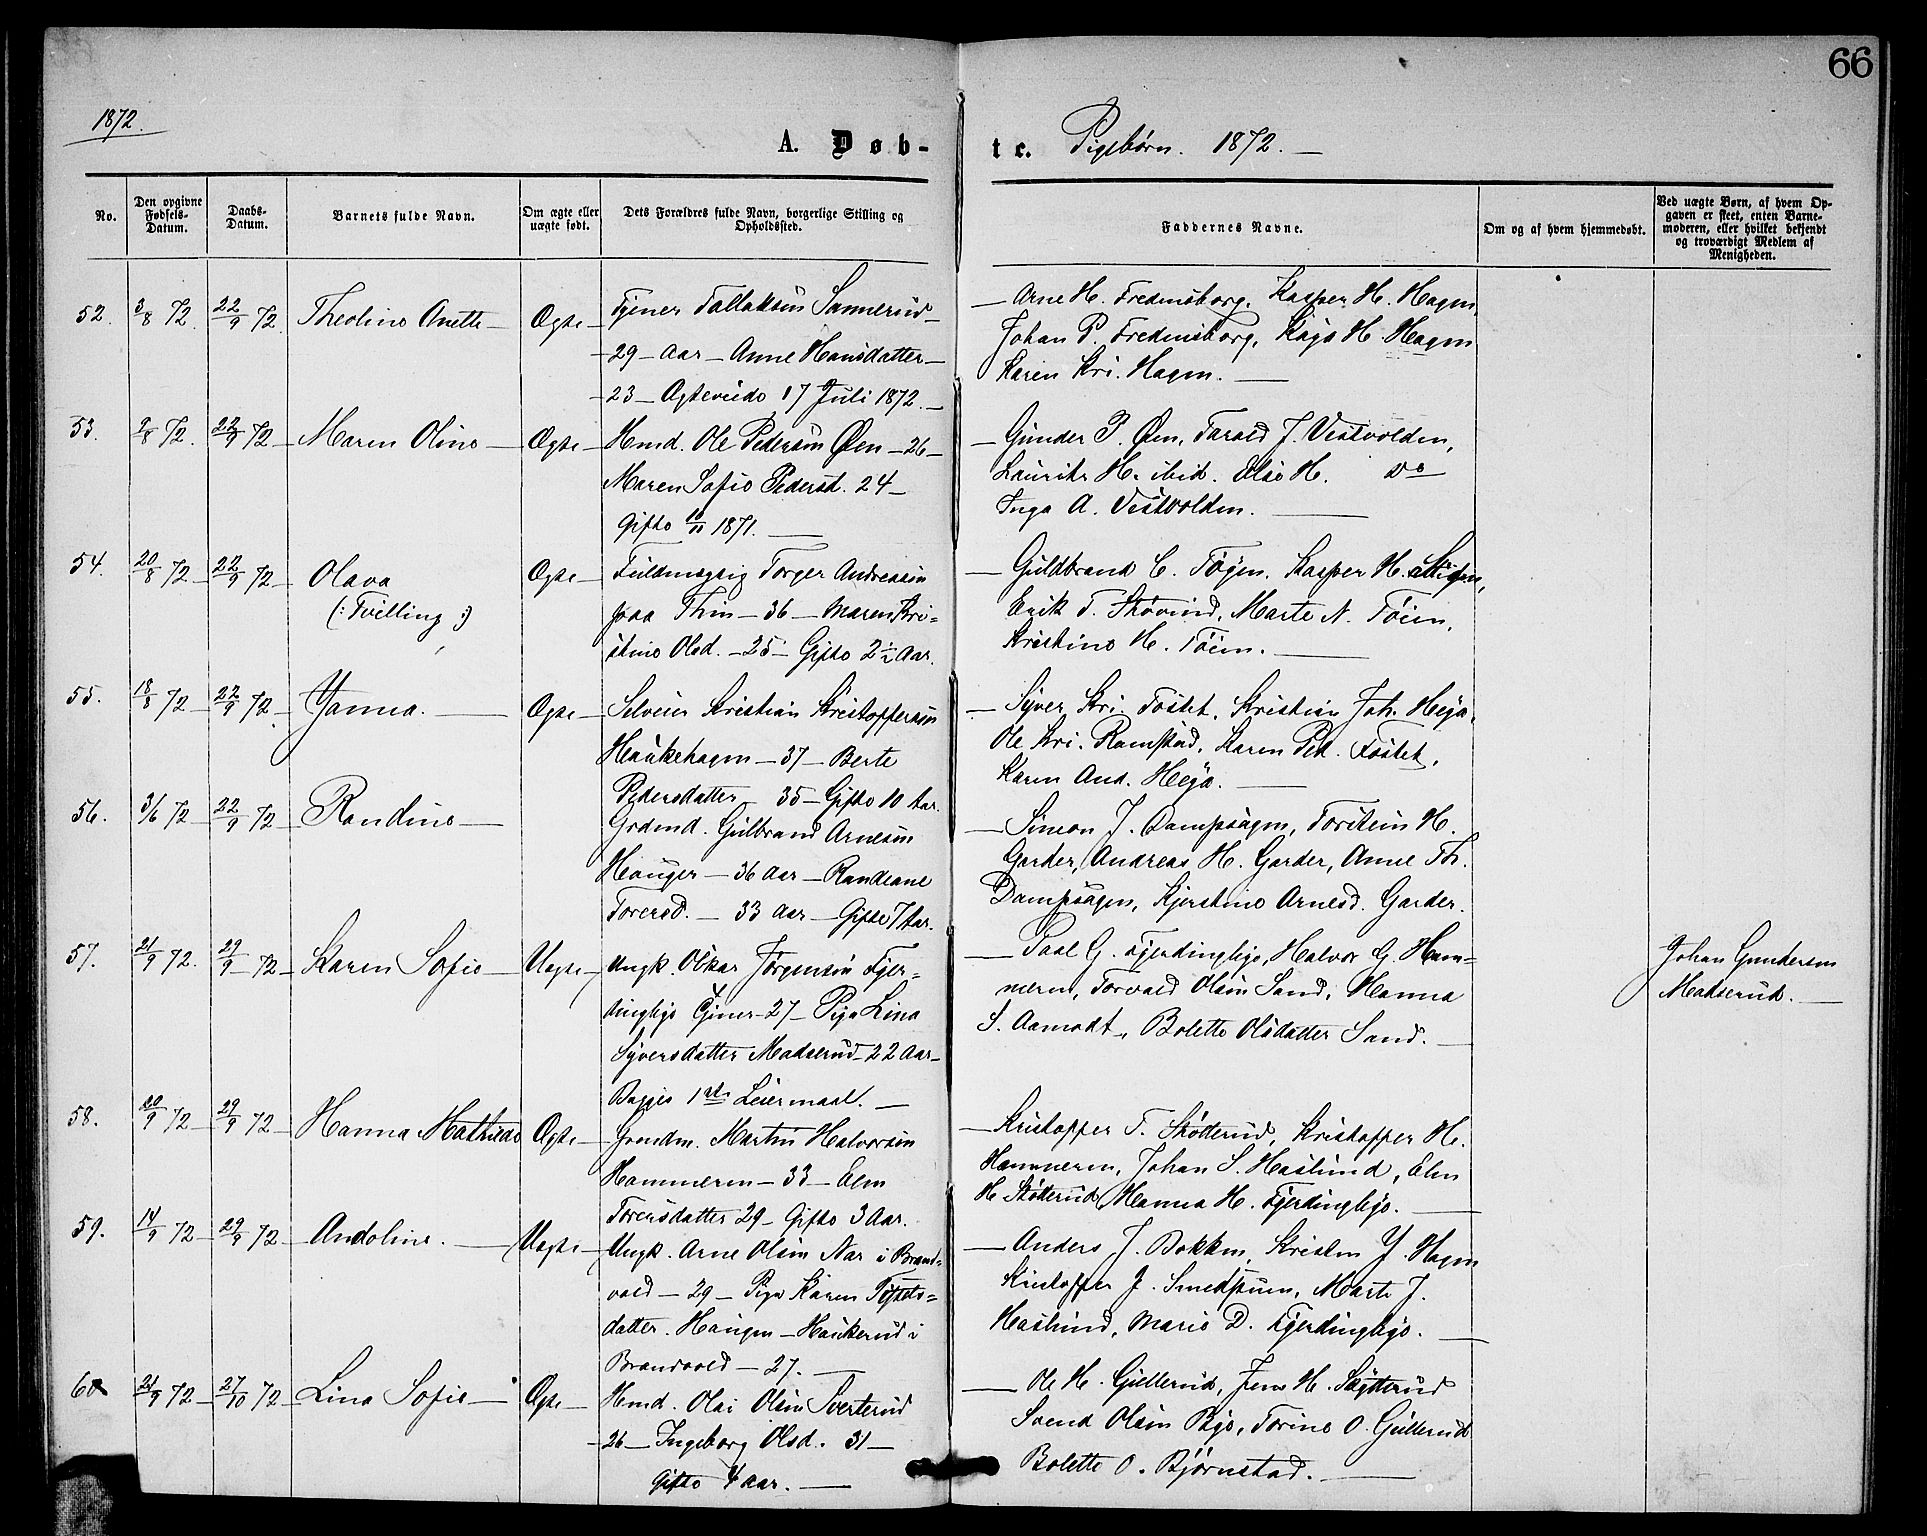 66
1872.
A. Døb-
te. Pigebørn. 1872.
No.
Den opgivne Fødsels-Datum.
Daabs-Datum.
Barnets fulde Navn.
Om ægte eller uægte født.
Dets Forældres fulde Navn, borgerlige Stilling og Opholdssted.
Faddernes Navne.
Om og af hvem hjemmedøbt.
Ved uægte Børn, af hvem Op-
gaven er skeet, enten Barne-
moderen, eller hvilket bekjendt
og troværdigt Medlem af
Menigheden.
52. 3/8 72. 22/9 72. Theoline Anette Ægte Tjener Tollaksen Sannerud
29 Aar Anne Hansdatter
23 Ægteviede 17 Juli 1872.
Arne H. Fredensborg, Kasper H. Hagen,
Johan P. Fredensborg, Kaja H. Hagen
Karen Kri. Hagen.
53. 2/8 72. 22/9 72 Maren Oline Ægte Hmd. Ole Pedersen Øen 26
Maren Sofie Pedersd. 24
Gifte 10/11 1871.
Gunder P. Øen, Tarald J. Vestvolden,
Lauritz H. ibid. Olse H. Do
Inga A. Vestvolden.
54. 20/8 72 22/9 72 Olava Ægte Fuldmægtig Torger Andreasen
(: Tvilling :)
paa Thin 36 Maren Kri-
stine Olsd. 25 Gifte 2 1/2 Aar.
Guldbrand C. Tøyen, Kasper H.
Erik T. Skøvind, Marte N. Tøien,
Kristine H. Tøien.
55. 18/8 72 22/9 72 Janna. Ægte Selveier Kristian Kristoffersen
Haukehagen 37 Berte
Pedersdatter 35 Gifte 10 Aar.
Syver Kri. Tostet, Kristian Joh. Heja,
Ole Kri. Ramstad, Karen Ped. Tostet,
Karen And. Heja.
56. 3/6 72 22/9 72 Randine Grdmd. Gulbrand Arnesen
Hauger 36 Aar Randiane
Torersd. 33 Aar Gifte 7 Aar.
Simeon J. Dampsagen, Torstein H.
Garder, Andreas H. Garder, Anne Th.
Dampsagen, Kjerstine Arnesd. Garder.
57. 21/9 72. 29/9 72 Karen Sofie Uægte Ungk. Oskar Jørgensen Fjer-
dingbye Tjener 27 Pige Lina
Syversdatter Madserud 22 Aar
Begges 1ste Leiermaal.
Paal G. Fjerdingbye, Halvor G. Ham-
meren, Torvald Olsen Sand, Hanna
S. Aamodt, Bolette Olsdatter Sand.
Johan Gundersen
Madserud.
58. 20/9 72 29/9 72 Hanna Mathilde Ægte Grundm. Martin Halvorsen
Hammeren 33 Elen
Torersdatter 29 Gifte 3 Aar.
Kristoffer T. Skøtterud, Kristoffer H.
Hammeren, Johan S. Haslund, Elen
H. Skøtterud, Hanna H. Fjerdingbye.
59. 14/9 72 29/9 72 Andoline. Uægte Ungk. Arne Olsen Nar i Brand-
vold 29 Pige Karen
datter. Haugen Haukerud i
Brandvold 27.
Anders J. Bakken, Kristen J. Hagen
Kristoffer J. Smedstuen, Marte J.
Haslund, Marie D. Fjerdingbye.
60 21/9 72 27/10 72 Lina Sofie Ægte Hmd. Olai Olsen Sverterud
26 Ingeborg Olsd. 31
Gifte 4 Aar.
Ole H. Gullerud, Jens H. Skøtterud
Svend Olsen Bye, Torine O. Gullerud
Bolette O. Bjørnstad.